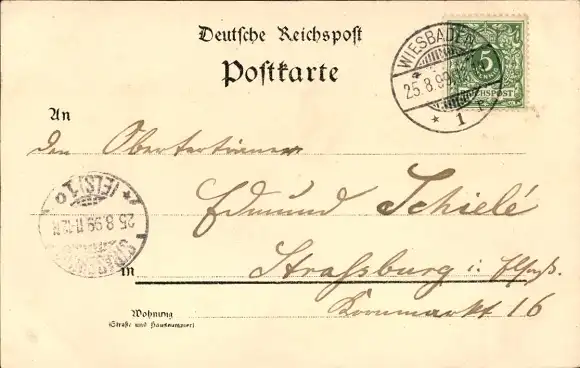 Deutsche Reichspost
Postkarte
WIESBADEN
25.8.99
* 1
5
REICHSPOST
An
den Obertertianer
Edmund Schielé
in Straßburg i. Elsaß.
Kornmarkt 16
Wohnung
(Straße und Hausnummer)
(ELS) 1
25 8 99 11-12